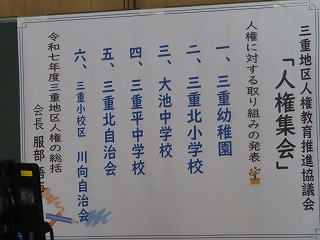 三重地区人権教育推進協議会
「人権集会」
人権に対する取り組みの発表
一、三重幼稚園
二、三重北小学校
三、大池中学校
四、三重平中学校
五、三重北自治会
六、三重小校区 川向自治会
令和七年度三重地区人権の総括
会長 服部